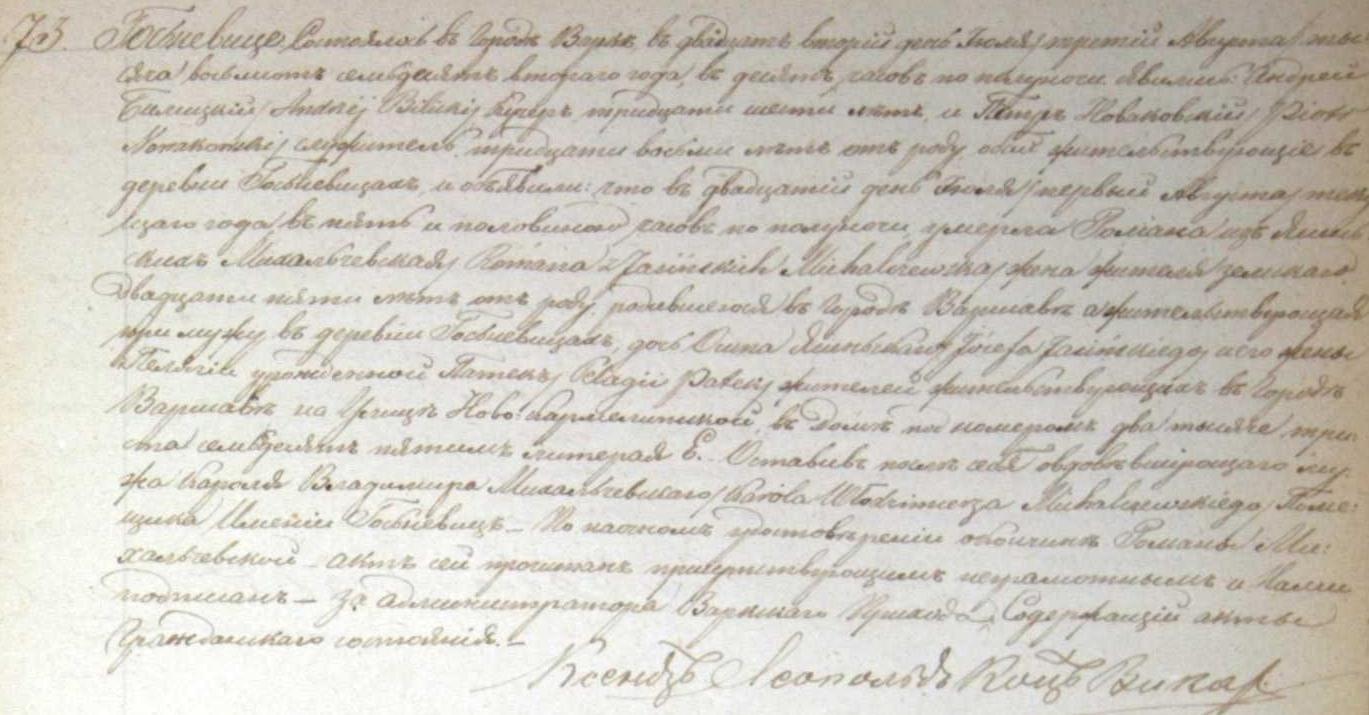 73. Госькевице, Состоялось въ городѣ Варкѣ въ двадцать вторый день Іюля / третій Августа / ты-
сяча восемьсотъ семьдесятъ втораго года, въ десять часовъ по полуночи. Явились: Андрей
Билицкій / Andrzej Bilicki / Кучеръ тридцати шести лѣтъ, и Петръ Новаковскій / Piotr
Nowakowski / служитель тридцати восьми лѣтъ отъ роду, оба жительствующіе въ
деревни и объявили: что въ двадцатый день Іюля / первый Августа / теку-
щаго года, въ пять и половиною часовъ по полуночи умерла Романа изъ Ясинь-
скихъ Михальчевская / Romana z Jasińskich Michalczewska / жена жителя земскаго
двадцати пяти лѣтъ отъ роду, родившегося въ городѣ Варшавѣ а жительствующая
при мужу въ деревни дочь Осипа Ясиньскаго / Józefa Jasińskiego / и его жены
Пелагіи урожденной Патекъ / Pelagii Patek / жителей жительствующихъ въ городѣ
Варшавѣ на Улицѣ Ново-кармелитской, въ домѣ подъ номеромъ два тысяче три-
ста семьдесятъ пятымъ литерая Е. Оставивъ послѣ себя овдовѣвшующаго му-
жа Кароля Владимира Михальчевскаго / Karola Włodzimierza Michalczewskiego / Поме-
щика Имѣнія – По наочномъ удостовѣреніи о кончинѣ Романы Ми-
хальчевской – актъ сей прочитанъ присутствующимъ неграмотнымъ и Нами
подписанъ – За администратора Варкскаго Прихода, Содержащій акты
Гражданскаго состоянія. –
Ксендзъ Леопольдъ Коцъ Викар